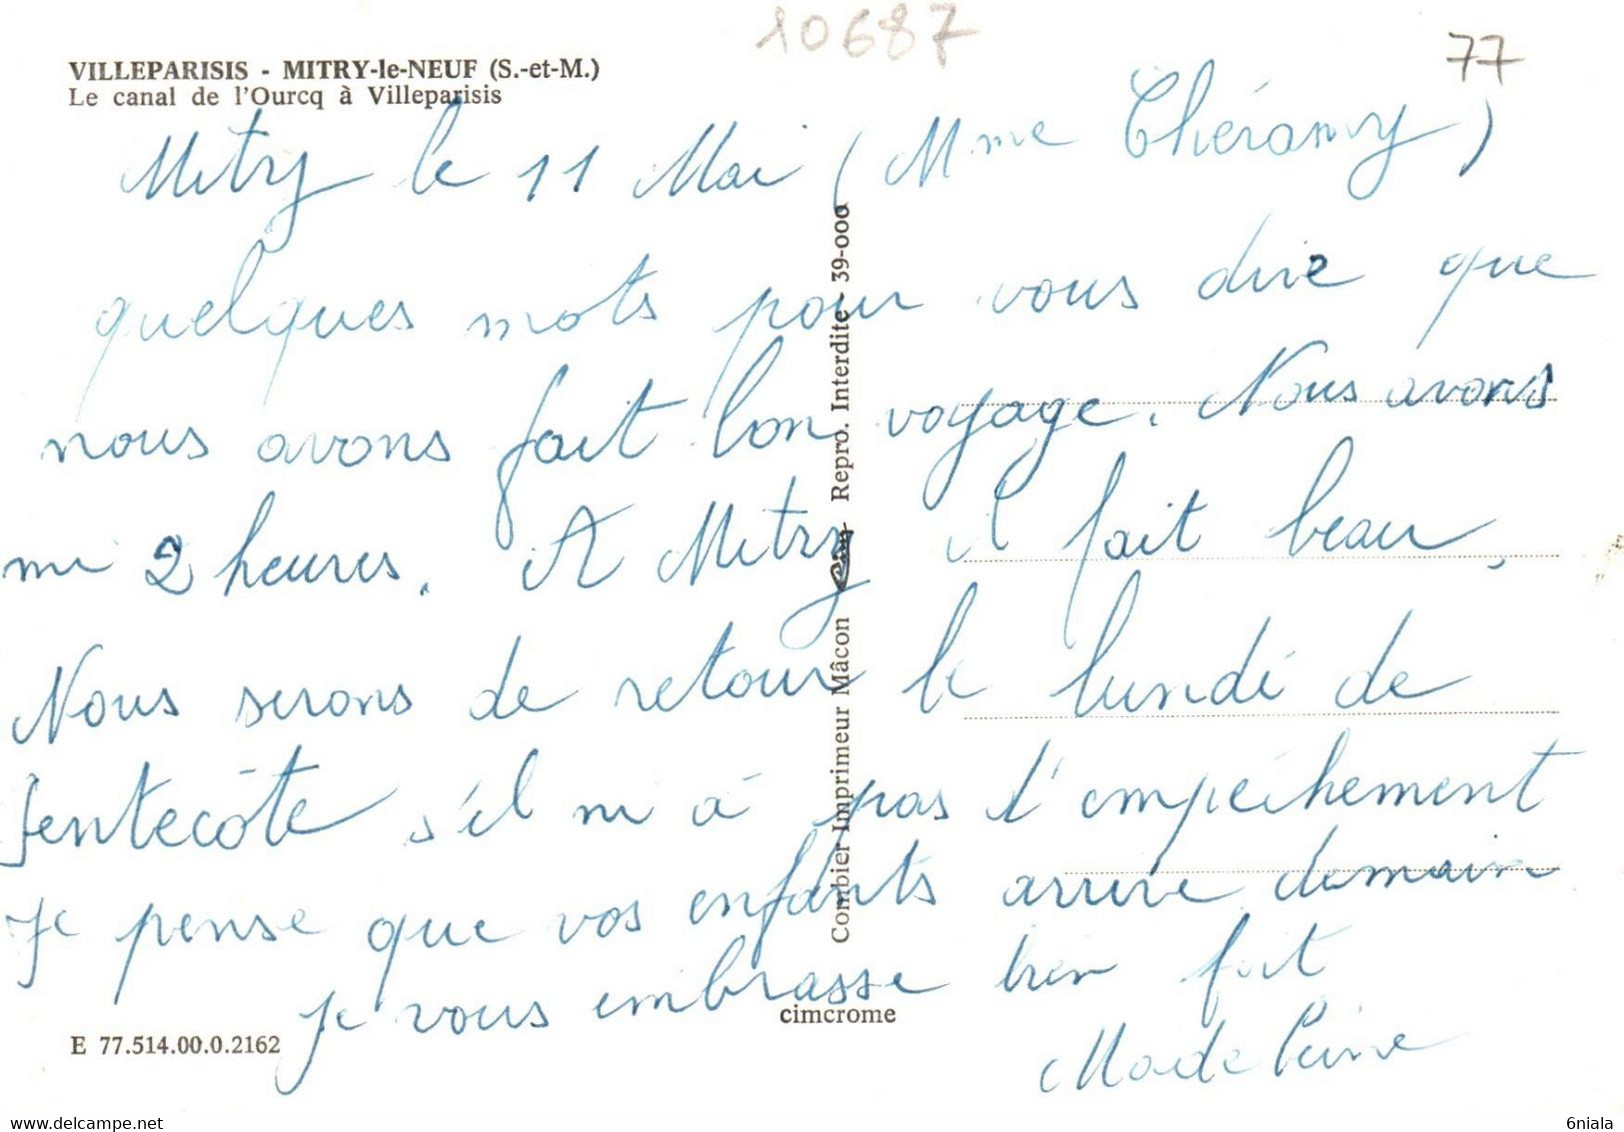 10687
77
VILLEPARISIS - MITRY-le-NEUF (S.-et-M.)
Le canal de l'Ourcq à Villeparisis
Mitry le 11 Mai (Mme Théramy)
quelques mots pour vous dire que
nous avons fait bon voyage. Nous avons
mi 2 heures. A Mitry il fait beau,
Nous serons de retour le lundi de
Pentecôte s'il ni à pas d'empêchement
Je pense que vos enfants arrive demain
Je vous embrasse bien fort
Madeleine
Combier Imprimeur Mâcon Cim Repro. Interdite - 39-000
cimcrome
E 77.514.00.0.2162
delcampe.net
6niala